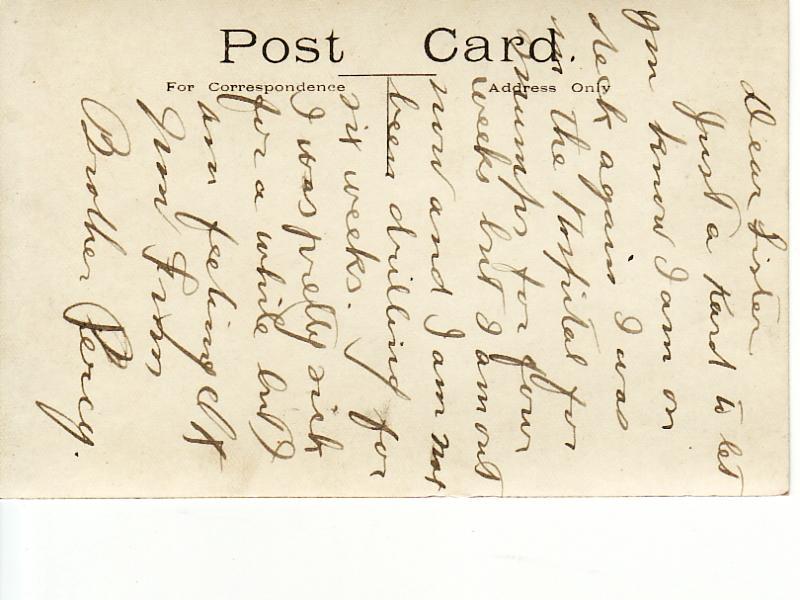 Post Card.
For Correspondence
Address Only
Dear Sister
Just a Kard to let
you know I am on
deck again I was
in the Hospital for
mumps for four
weeks but I am out
now and I am not
been drilling for
six weeks.
I was pretty sick
for a while but I
am feeling OK
now From
Brother Percy.